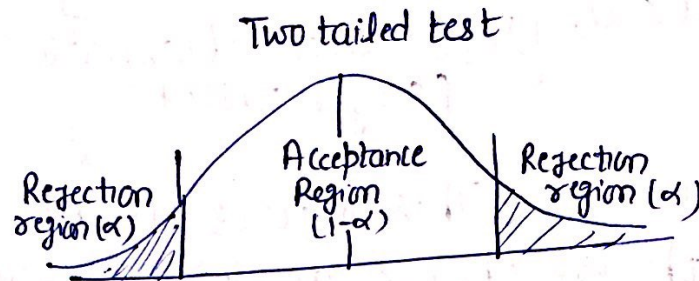 Two tailed test
Rejection
region (α)
Acceptance
Region
(1-α)
Rejection
region (α)